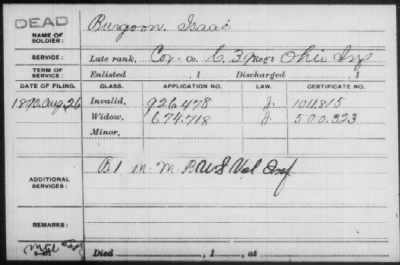 DEAD
NAME OF SOLDIER: Burgoon, Isaac
SERVICE: Late rank, Cor. Co. C. 39 Reg't Ohio Inf
TERM OF SERVICE: Enlisted , 1 Discharged , 1
DATE OF FILING. CLASS. APPLICATION NO. LAW. CERTIFICATE NO.
1890 Aug 26 Invalid, 926.478 J. 1011815
Widow, 674.718 J 500.323
Minor,
ADDITIONAL SERVICES: B 1 M. M. B U S Vol Inf
REMARKS:
Died , 1 , at